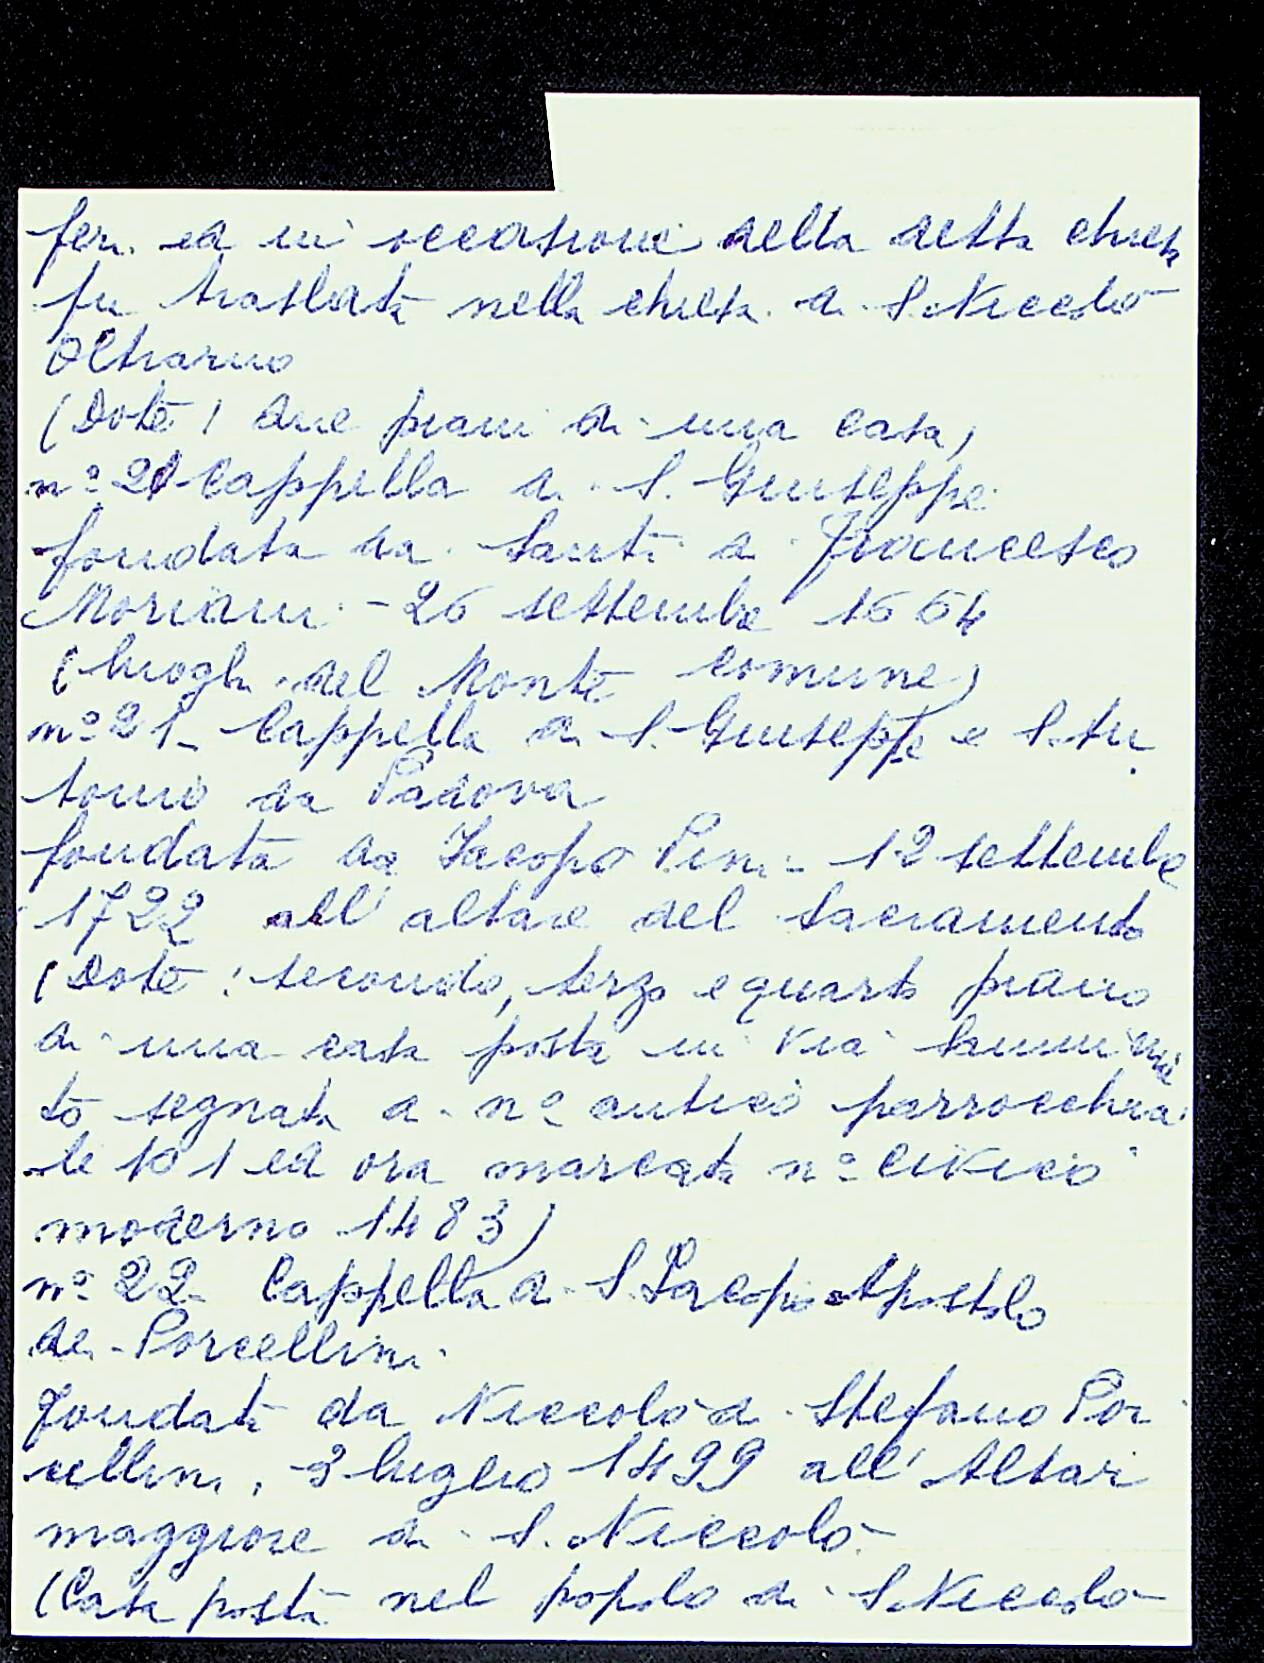 feri. ed in occasione della detta chiesa
fu traslata nella chiesa di S. Niccolò
Oltrarno
(Dote: due piani di una casa)
n° 20 Cappella di S. Giuseppe
fondata da Santi di Francesco
Moriani - 26 settembre 1664
(luoghi del Monte Comune)
n° 21 - Cappella di S. Giuseppe e S. An
tonio da Padova
fondata da Jacopo Pini - 12 settembre
1722 all'altare del Sacramento
(Dote: secondo, terzo e quarto piano
di una casa posta in Via Samminia
to segnata di n° antico parrocchia
le 101 ed ora marcata n° civico
moderno 1483)
n° 22 - Cappella di S. Jacopo Apostolo
dei Porcellini.
fondata da Niccolò di Stefano Por
cellini, 3 luglio 1499 all'Altar
maggiore di S. Niccolò
(Casa posta nel popolo di S. Niccolò